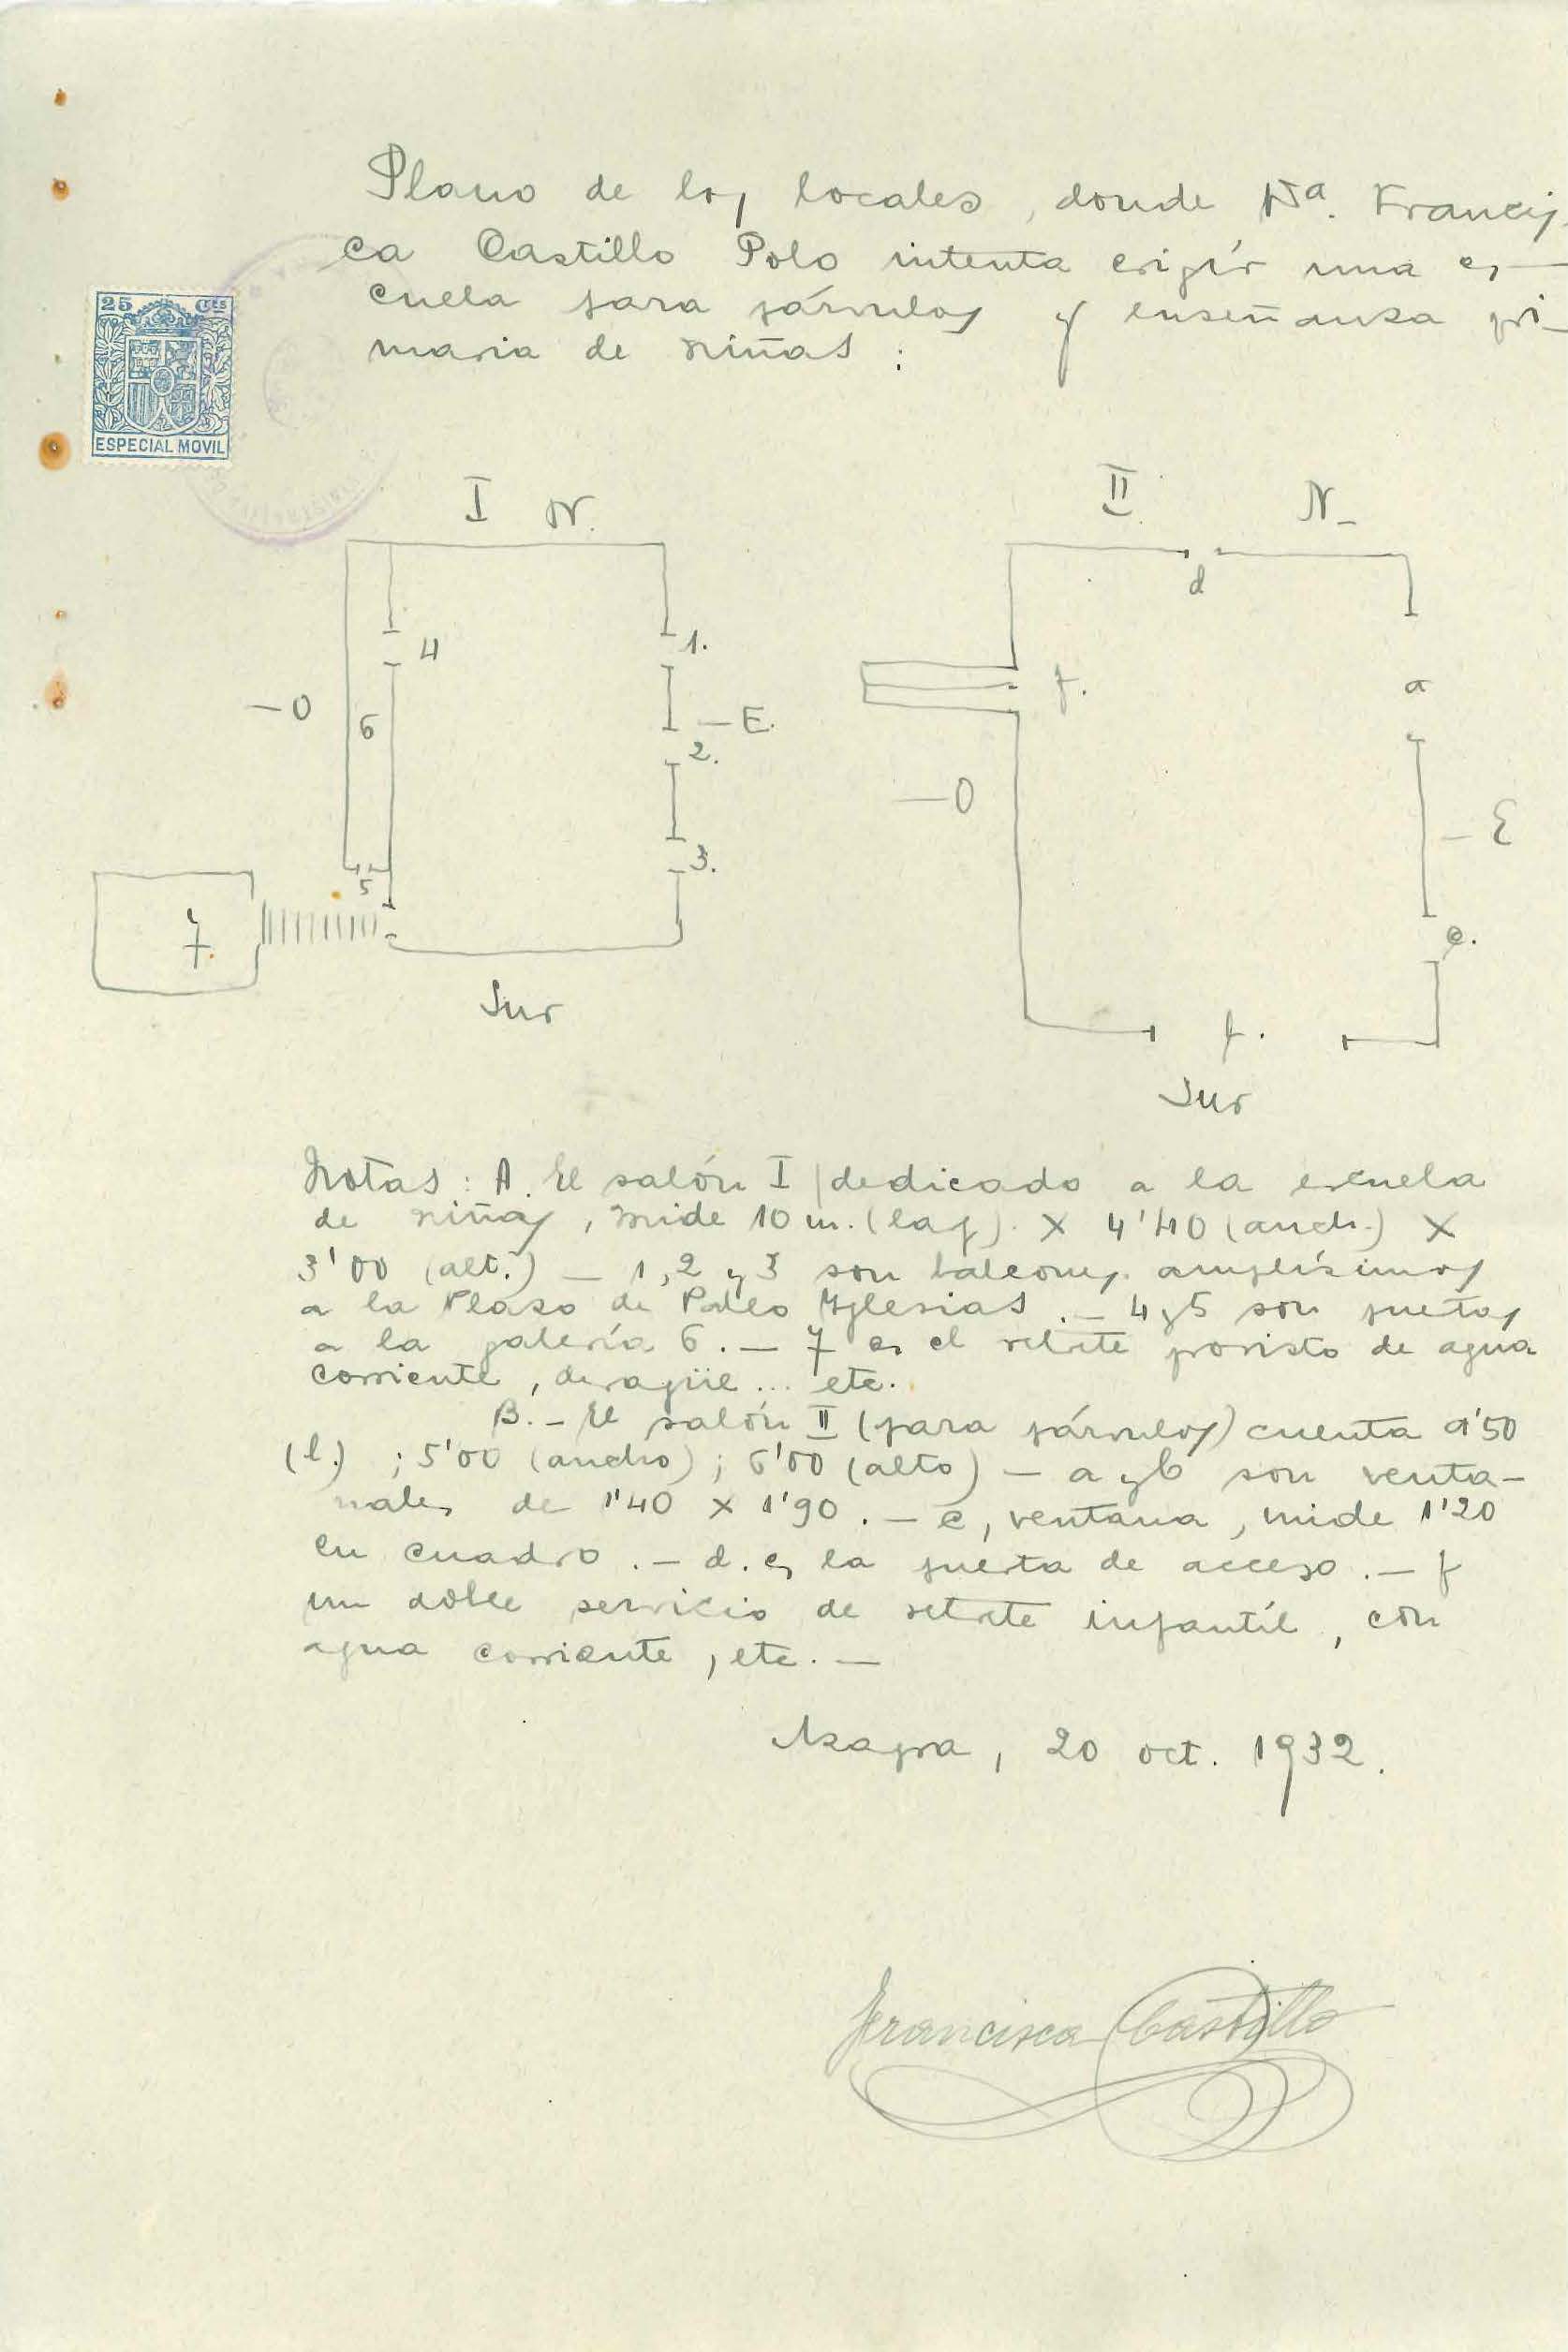 Plano de los locales, donde Dª. Francis-
ca Castillo Polo intenta erigir una es-
cuela para párvulos y enseñanza pri-
maria de niñas:
25 Cts
ESPECIAL MOVIL
I N.
II N-
d
4
1.
f.
a
-O
6
-E.
2.
-O
-E
3.
5
7
e.
f.
Sur
Sur
Notas: A. El salón I dedicado a la escuela
de niñas, mide 10 m. (larg). X 4'40 (anch.) X
3'00 (alt.) - 1, 2 y 3 son balcones amplísimos
a la Plaza de Pablo Yglesias. - 4 y 5 son puertas
a la galería 6. - 7 es el retrete provisto de agua
corriente, desagüe... etc.
B. - El salón II (para párvulos) cuenta 9'50
(l.) ; 5'00 (ancho); 6'00 (alto) - a y b son venta-
nales de 1'40 x 1'90. - c, ventana, mide 1'20
en cuadro. - d. es la puerta de acceso. - f
un doble servicio de retrete infantíl, con
agua corriente, etc. -
Azagra, 20 oct. 1932.
Francisca Castillo